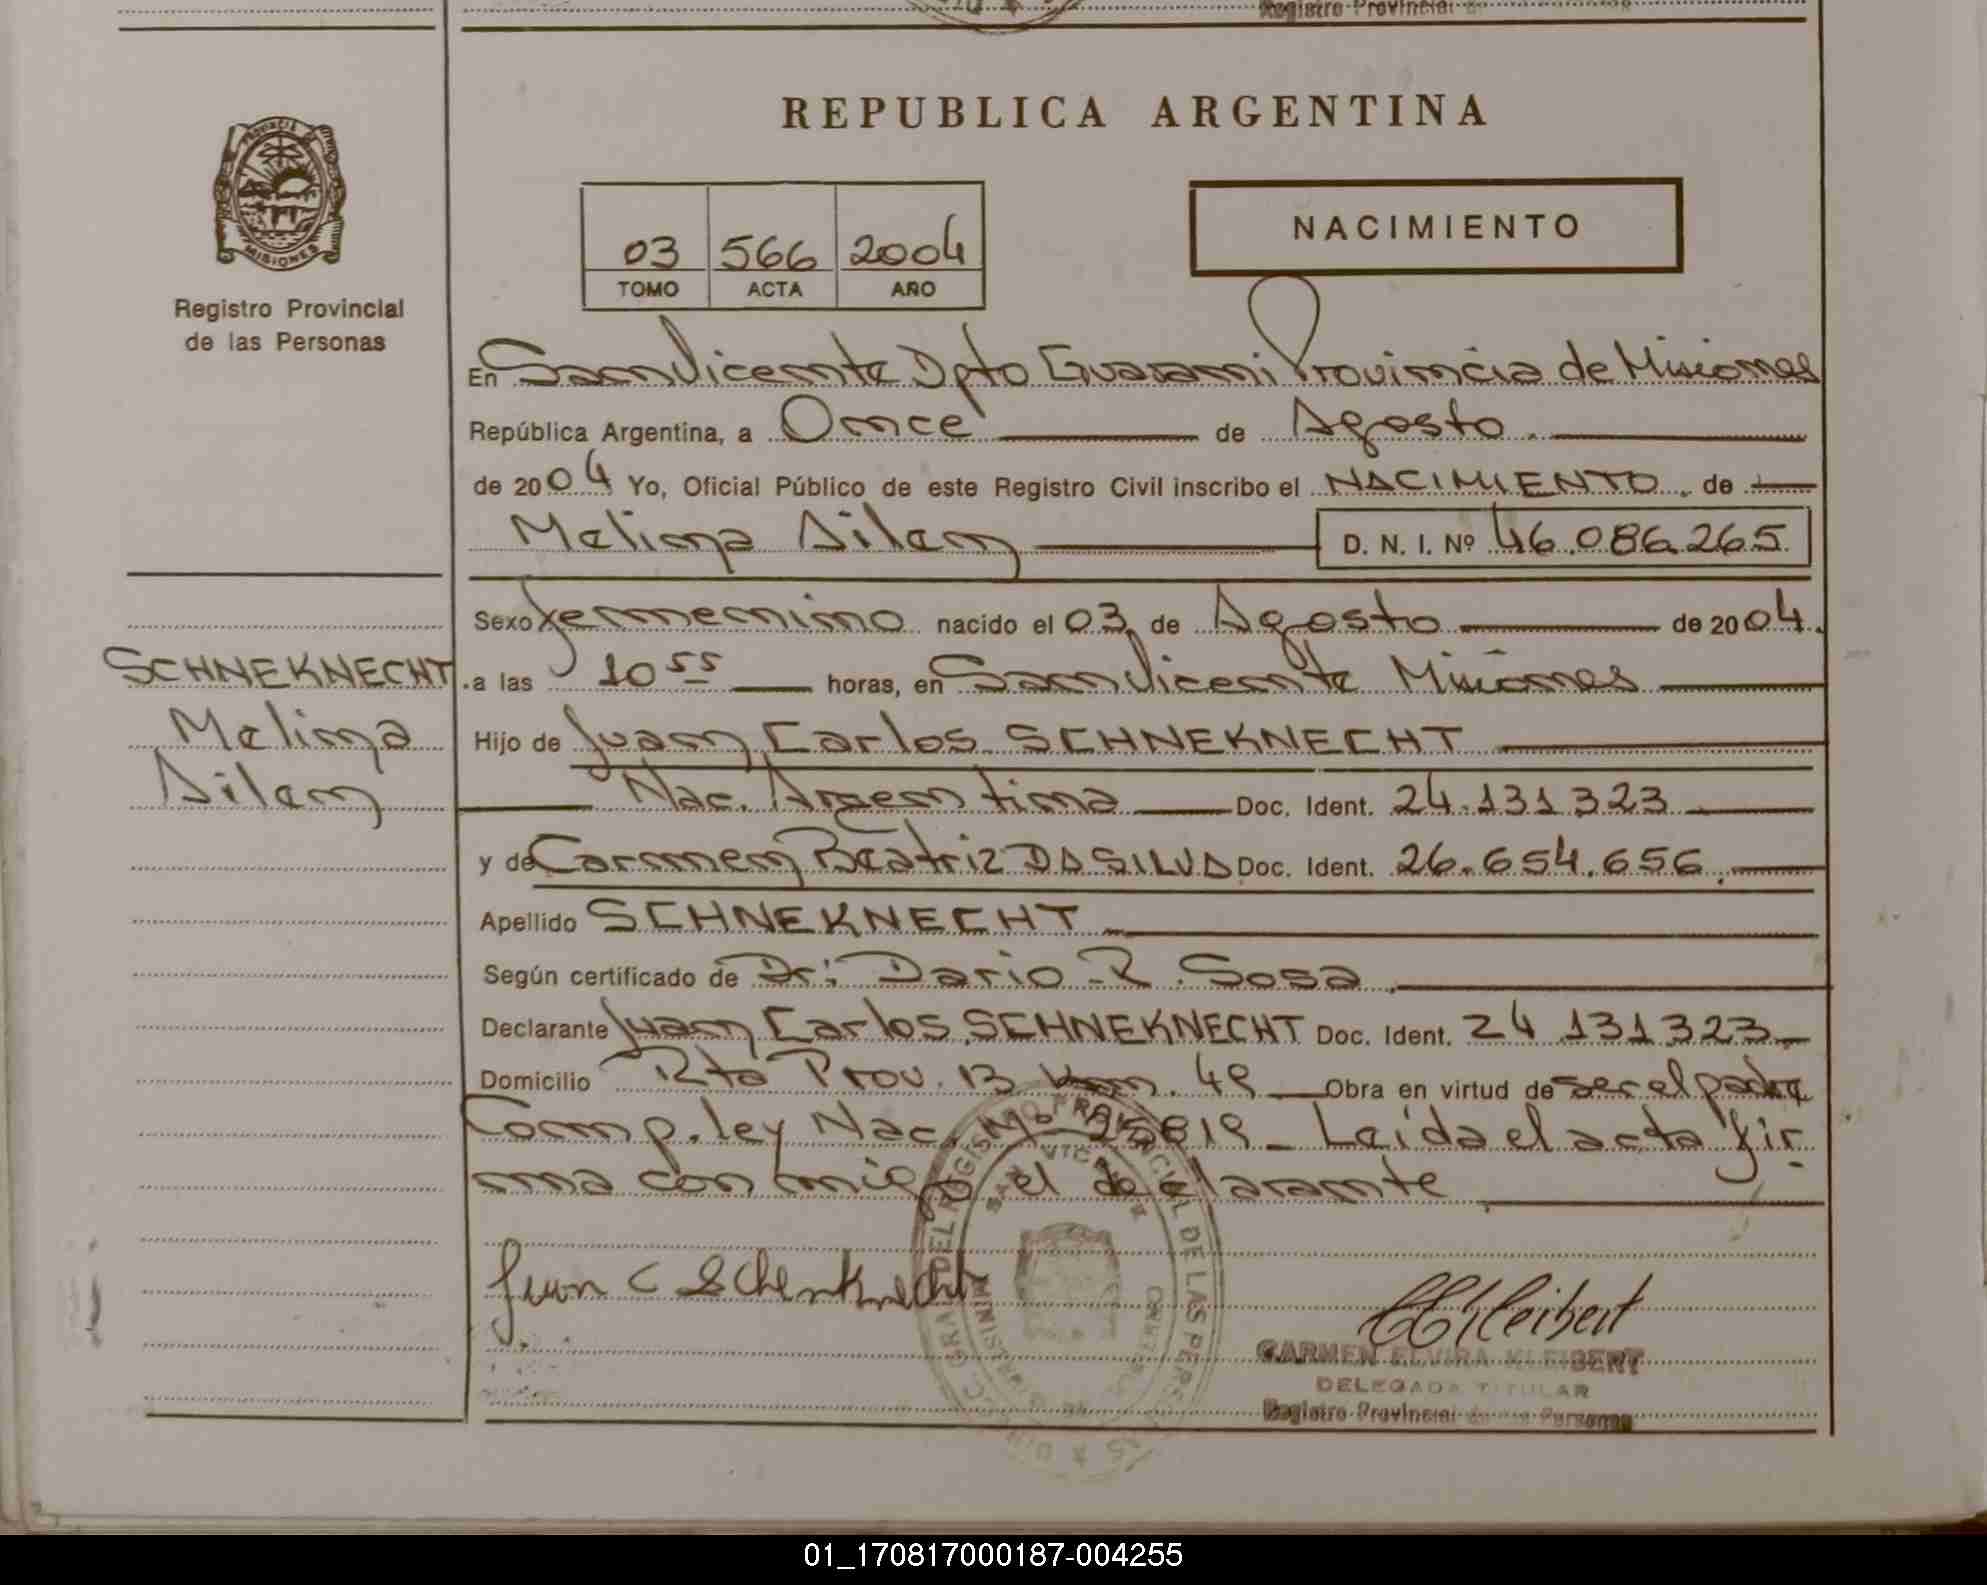 Registro Provincial
REPUBLICA ARGENTINA
PROVINCIA DE
MISIONES
Registro Provincial
de las Personas
03 566 2004
TOMO ACTA AÑO
NACIMIENTO
En San Vicente Dpto Guarani Provincia de Misiones
República Argentina, a Once de Agosto
de 2004 Yo, Oficial Público de este Registro Civil inscribo el NACIMIENTO de
Melina Ailen D. N. I. Nº 46.086.265
Sexo femenino nacido el 03 de Agosto de 2004.
SCHNEKNECHT
Melina
Ailen
a las 10 55 horas, en San Vicente Misiones
Hijo de Juan Carlos SCHNEKNECHT
Nac. Argentina Doc. Ident. 24.131.323
y de Carmen Beatriz DA SILVA Doc. Ident. 26.654.656.
Apellido SCHNEKNECHT
Según certificado de Dr: Dario R. Sosa
Declarante Juan Carlos SCHNEKNECHT Doc. Ident. 24.131.323
Domicilio Rta Prov. 13 Km. 49 Obra en virtud de ser el padre
Comp. ley Nac. Nº 25819 - Leida el acta fir
ma conmigo el declarante
Juan C Schenknecht
CC Kleibert
CARMEN ELVIRA KLEIBERT
DELEGADA TITULAR
Registro Provincial de las Personas
01_170817000187-004255